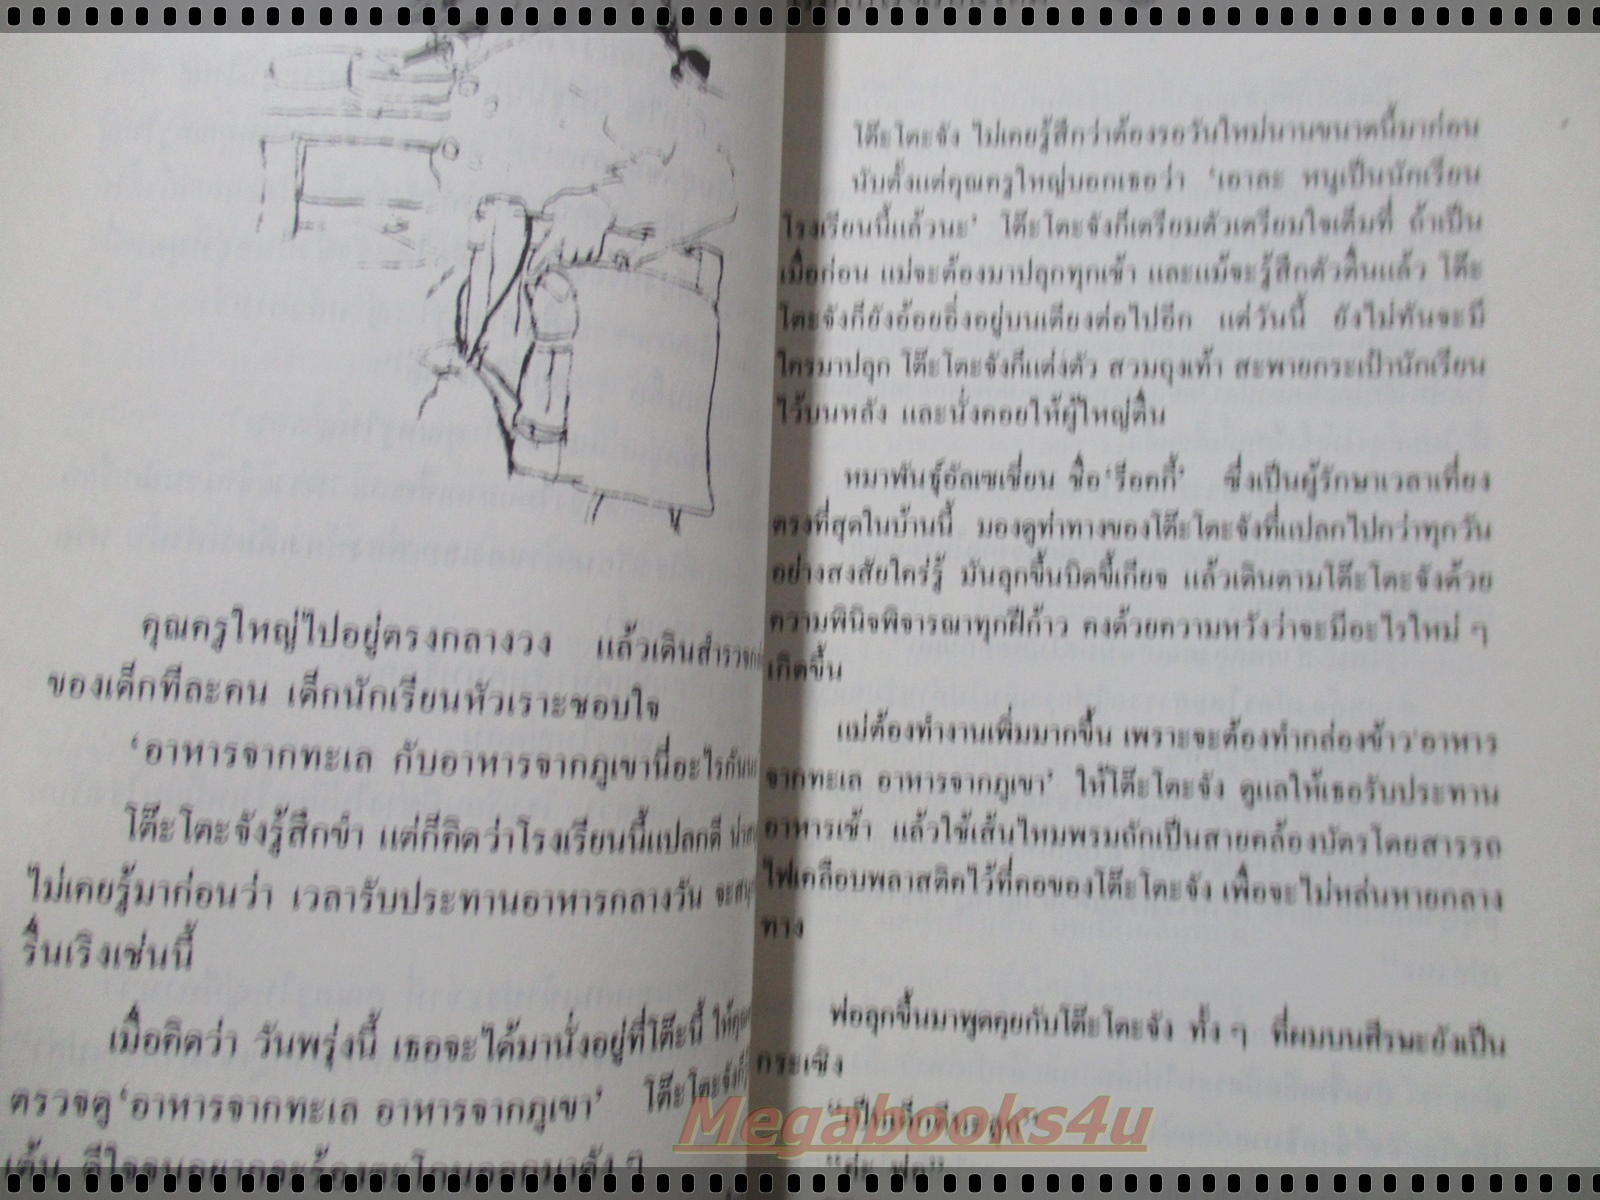 คุณครูใหญ่ไปอยู่ตรงกลางวง แล้วเดินสำรวจ
ของเด็กทีละคน เด็กนักเรียนหัวเราะชอบใจ
‘อาหารจากทะเล กับอาหารจากภูเขานี่อะไรกัน
โต๊ะโตะจังรู้สึกขำ แต่ก็คิดว่าโรงเรียนนี้แปลกดี
ไม่เคยรู้มาก่อนว่า เวลารับประทานอาหารกลางวัน
รื่นเริงเช่นนี้
เมื่อคิดว่า วันพรุ่งนี้ เธอจะได้มานั่งอยู่ที่โต๊ะนี้
ตรวจดู ‘อาหารจากทะเล อาหารจากภูเขา’ โต๊ะโตะจังก็
เต้น ดีใจจนอยากจะร้องตะโกนออกมาดัง ๆ
โต๊ะโตะจัง ไม่เคยรู้สึกว่าต้องรอวันใหม่นานขนาดนี้มาก่อน
นับตั้งแต่คุณครูใหญ่บอกเธอว่า ‘เอาละ หนูเป็นนักเรียน
โรงเรียนนี้แล้วนะ’ โต๊ะโตะจังก็เตรียมตัวเตรียมใจเต็มที่ ถ้าเป็น
เมื่อก่อน แม่จะต้องมาปลุกทุกเช้า และแม้จะรู้สึกตัวตื่นแล้ว โต๊ะ
โตะจังก็ยังอ้อยอิ่งอยู่บนเตียงต่อไปอีก แต่วันนี้ ยังไม่ทันจะมี
ใครมาปลุก โต๊ะโตะจังก็แต่งตัว สวมถุงเท้า สะพายกระเป๋านักเรียน
ไว้บนหลัง และนั่งคอยให้ผู้ใหญ่ตื่น
หมาพันธุ์อัลเซเชี่ยน ชื่อ ‘ร็อคกี้’ ซึ่งเป็นผู้รักษาเวลาเที่ยง
ตรงที่สุดในบ้านนี้ มองดูท่าทางของโต๊ะโตะจังที่แปลกไปกว่าทุกวัน
อย่างสงสัยใคร่รู้ มันลุกขึ้นบิดขี้เกียจ แล้วเดินตามโต๊ะโตะจังด้วย
ความพินิจพิจารณาทุกฝีก้าว คงด้วยความหวังว่าจะมีอะไรใหม่ ๆ
เกิดขึ้น
แม่ต้องทำงานเพิ่มมากขึ้น เพราะจะต้องทำกล่องข้าว ‘อาหาร
จากทะเล อาหารจากภูเขา’ ให้โต๊ะโตะจัง ดูแลให้เธอรับประทาน
อาหารเช้า แล้วใช้เส้นไหมพรมถักเป็นสายคล้องบัตรโดยสารรถ
ไฟเคลือบพลาสติคไว้ที่คอของโต๊ะโตะจัง เพื่อจะไม่หล่นหายกลาง
ทาง
พ่อลุกขึ้นมาพูดคุยกับโต๊ะโตะจัง ทั้ง ๆ ที่ผมบนศีรษะยังเป็น
กระเซิง
“เป็นเด็กดีนะลูก”
“ค่ะ พ่อ”
Megabooks4u